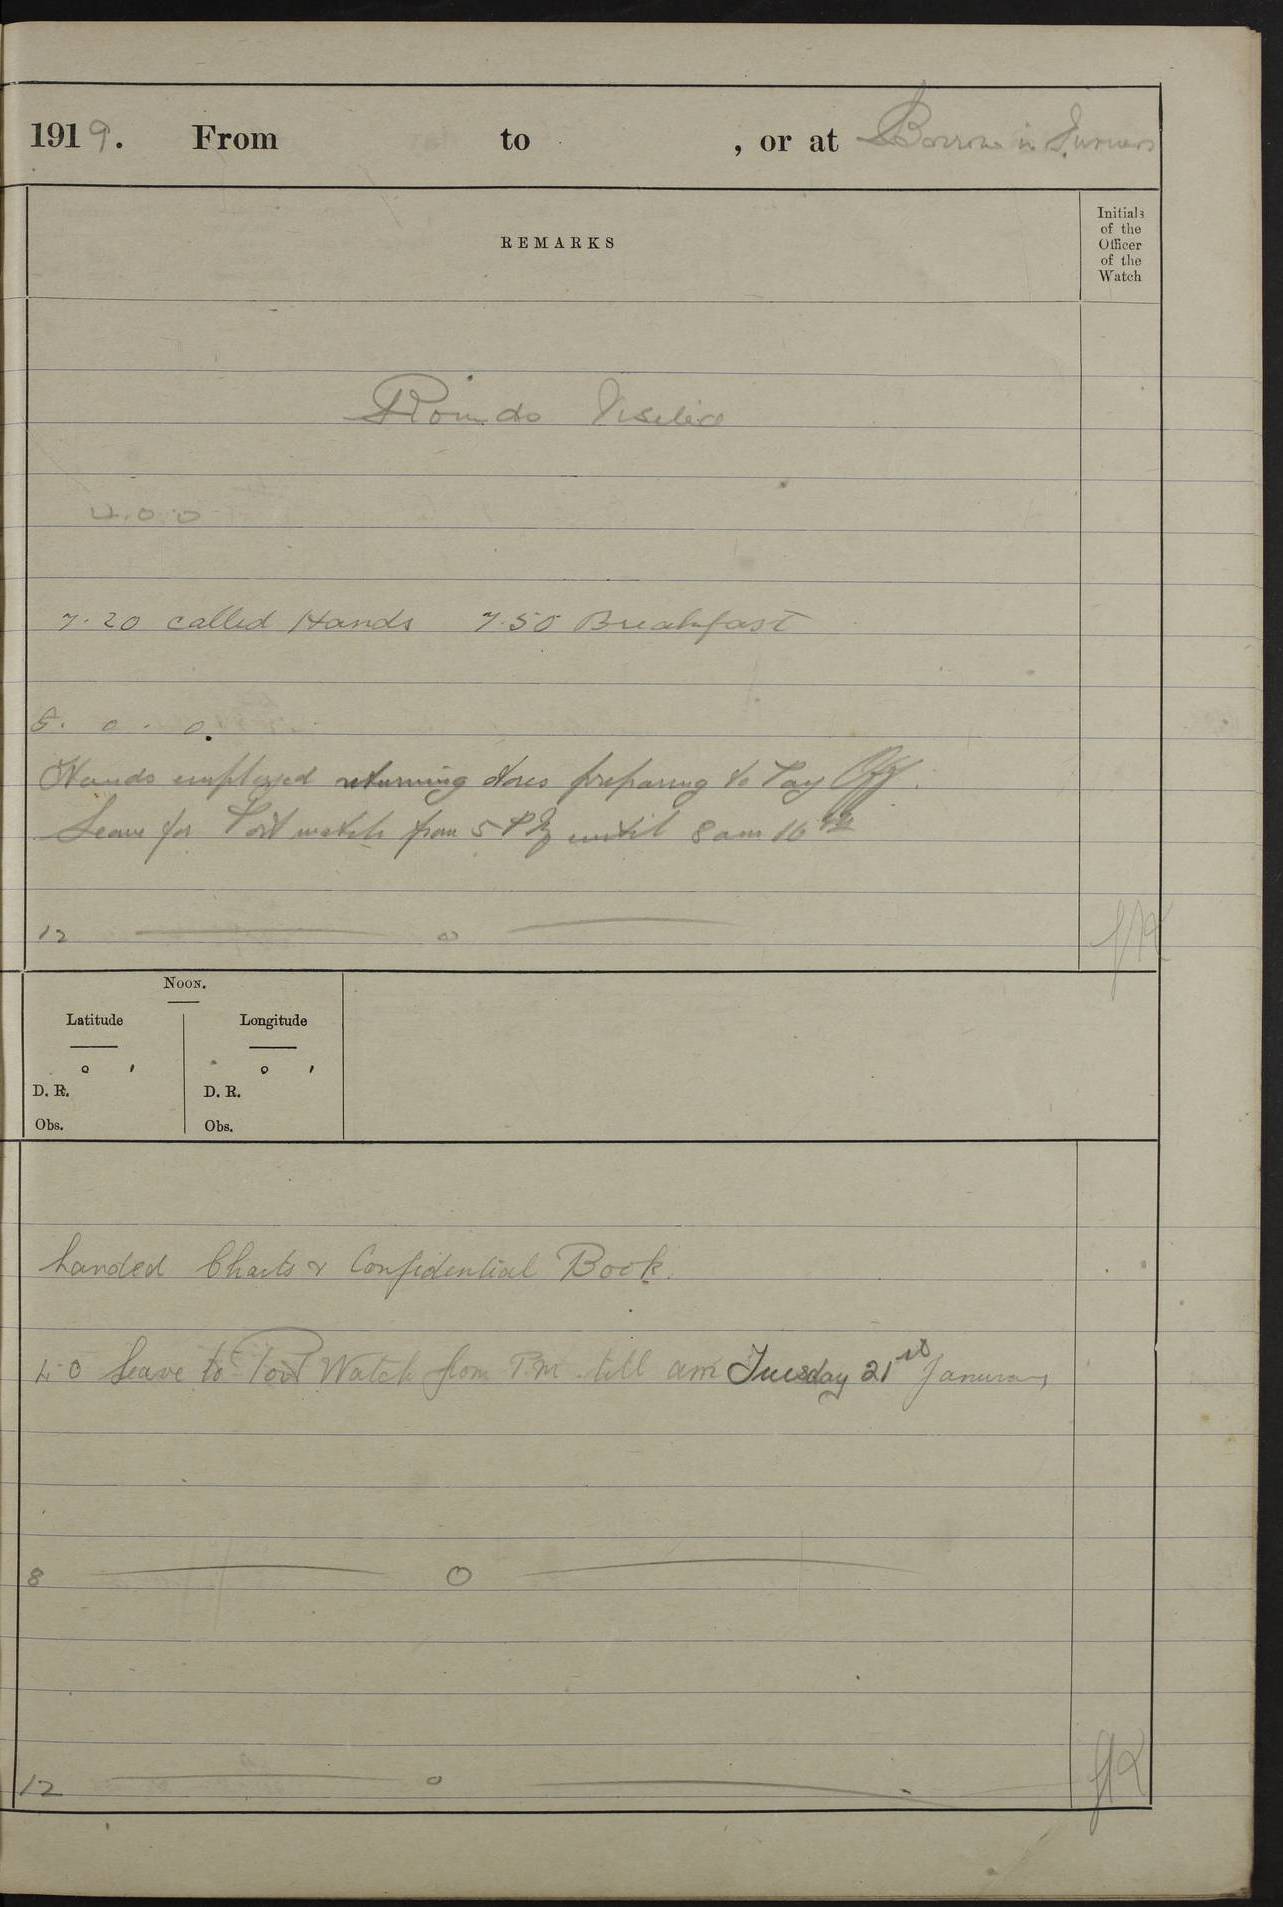 1919. From to , or at Barrow in Furness
REMARKS
Initials
of the
Officer
of the
Watch
Rounds
4.0.0
7.20 called Hands 7.50 Breakfast
8. 0. 0.
Hands employed returning stores preparing to Pay Off.
Leave for Port watch from 5 PM until 8 am 16th
12 o
JK
NOON.
Latitude Longitude
° ′ ° ′
D. R. D. R.
Obs. Obs.
handed Charts & Confidential Book.
4.0 Leave to Port Watch from P.M till am Tuesday 21st January
8 O
12 o
JK